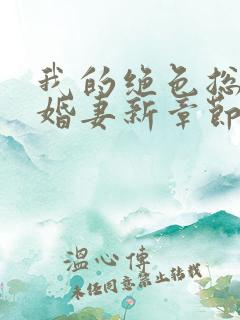 我的绝色总
婚妻新章节
温心傅
未经同意禁止转载